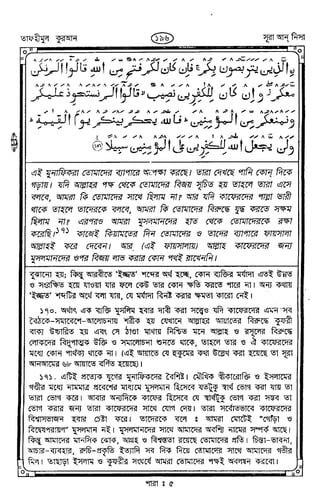 তাফহীমুল কুরআন
১৯৬
সূরা আন্ নিসা
الَّذِينَ يَتَرَبَّصُونَ بِكُمْ ۚ فَإِنْ كَانَ لَكُمْ فَتْحٌ مِّنَ اللَّهِ قَالُوا أَلَمْ نَكُنْ
مَّعَكُمْ ۖ وَإِنْ كَانَ لِلْكَافِرِينَ نَصِيبٌ ۙ قَالُوا أَلَمْ نَسْتَحْوِذْ عَلَيْكُمْ
وَنَمْنَعْكُم مِّنَ الْمُؤْمِنِينَ ۚ فَاللَّهُ يَحْكُمُ بَيْنَكُمْ يَوْمَ الْقِيَامَةِ ۗ
وَلَن يَجْعَلَ اللَّهُ لِلْكَافِرِينَ عَلَى الْمُؤْمِنِينَ سَبِيلًا
এই মুনাফিকরা তোমাদের ব্যাপারে অপেক্ষা করছে। তারা দেখছে পানি কোন্ দিকে
গড়ায়। যদি আল্লাহর পক্ষ থেকে তোমাদের বিজয় সূচিত হয় তাহলে তারা এসে
বলবে, আমরা কি তোমাদের সাথে ছিলাম না? আর যদি কাফেরদের পাল্লা ভারী
থাকে তাহলে তাদেরকে বলবে, আমরা কি তোমাদের বিরুদ্ধে যুদ্ধ করতে সক্ষম
ছিলাম না? এরপরও আমরা মুসলমানদের হাত থেকে তোমাদেরকে রক্ষা
করেছি।১৭১ কাজেই কিয়ামতের দিন তোমাদের ও তাদের ব্যাপারে ফায়সালা
আল্লাহই করে দেবেন। আর (এই ফায়সালায়) আল্লাহ কাফেরদের জন্য
মুসলমানদের ওপর বিজয় লাভ করার কোন পথই রাখেননি।
বুঝানো হয়; কিন্তু আরবীতে 'ইজ্জত' শব্দের অর্থ হচ্ছে, কোন ব্যক্তির মর্যাদা এতই উন্নত
ও সংরক্ষিত হয়ে যাওয়া যার ফলে কেউ তার কোন ক্ষতি করতে পারে না। অন্য কথায়
'ইজ্জত' শব্দটির অর্থ বলা যায়, যে মর্যাদা বিনষ্ট করার ক্ষমতা কারো নেই।
১৭০. অর্থাৎ এক ব্যক্তি মুসলিম হবার দাবী করা সত্ত্বেও যদি কাফেরদের এমন সব
বৈঠকে-সমাবেশে-আলোচনায় শরীক হয় যেখানে আল্লাহর আয়াতের বিরুদ্ধে কুফরী
বাক্য উচ্চারিত হয় এবং সে ঠাণ্ডা মাথায় নিশ্চিন্ত মনে আল্লাহ ও রসূলের বিরুদ্ধে
লোকদের বিদ্রূপাত্মক উক্তি ও সমালোচনা শুনতে থাকে, তাহলে তার ও ঐ কাফেরদের
মধ্যে কোন পার্থক্য থাকে না। (এই আয়াতে যে হুকুমের কথা উল্লেখ করা হয়েছে তা সূরা
আনআমের ৬৮ আয়াতে বর্ণিত হয়েছে।)
১৭১. এটিই প্রত্যেক যুগের মুনাফিকদের বৈশিষ্ট্য। মৌখিক স্বীকারোক্তি ও ইসলামের
গণ্ডীর মধ্যে নামমাত্র প্রবেশের মাধ্যমে মুসলমান হিসেবে যতটুকু স্বার্থ ভোগ করা যায় তা
তারা ভোগ করে। আবার অন্যদিকে কাফের হিসেবে যে স্বার্থটুকু ভোগ করা সম্ভব তা
ভোগ করার জন্য তারা কাফেরদের সাথে যোগ দেয়। তারা সর্বোতভাবে কাফেরদের
বিশ্বাসভাজন হবার চেষ্টা করে। তাদেরকে বলে ঃ আমরা মোটেই "গোঁড়া ও
বিদ্বেষপরায়ণ" মুসলমান নই। মুসলমানদের সাথে আমাদের অবশ্যি নামের সম্পর্ক আছে।
কিন্তু আমাদের মানসিক ঝোঁক, আগ্রহ ও বিশ্বস্ততা রয়েছে তোমাদের প্রতি। চিন্তা-ভাবনা,
আচার-ব্যবহার, রুচি-প্রকৃতি ইত্যাদি সব দিক দিয়ে তোমাদের সাথে আমাদের গভীর
মিল। তাছাড়া ইসলাম ও কুফরীর সংঘর্ষে আমরা তোমাদের পক্ষই অবলম্বন করবো।
পারা ঃ ৫